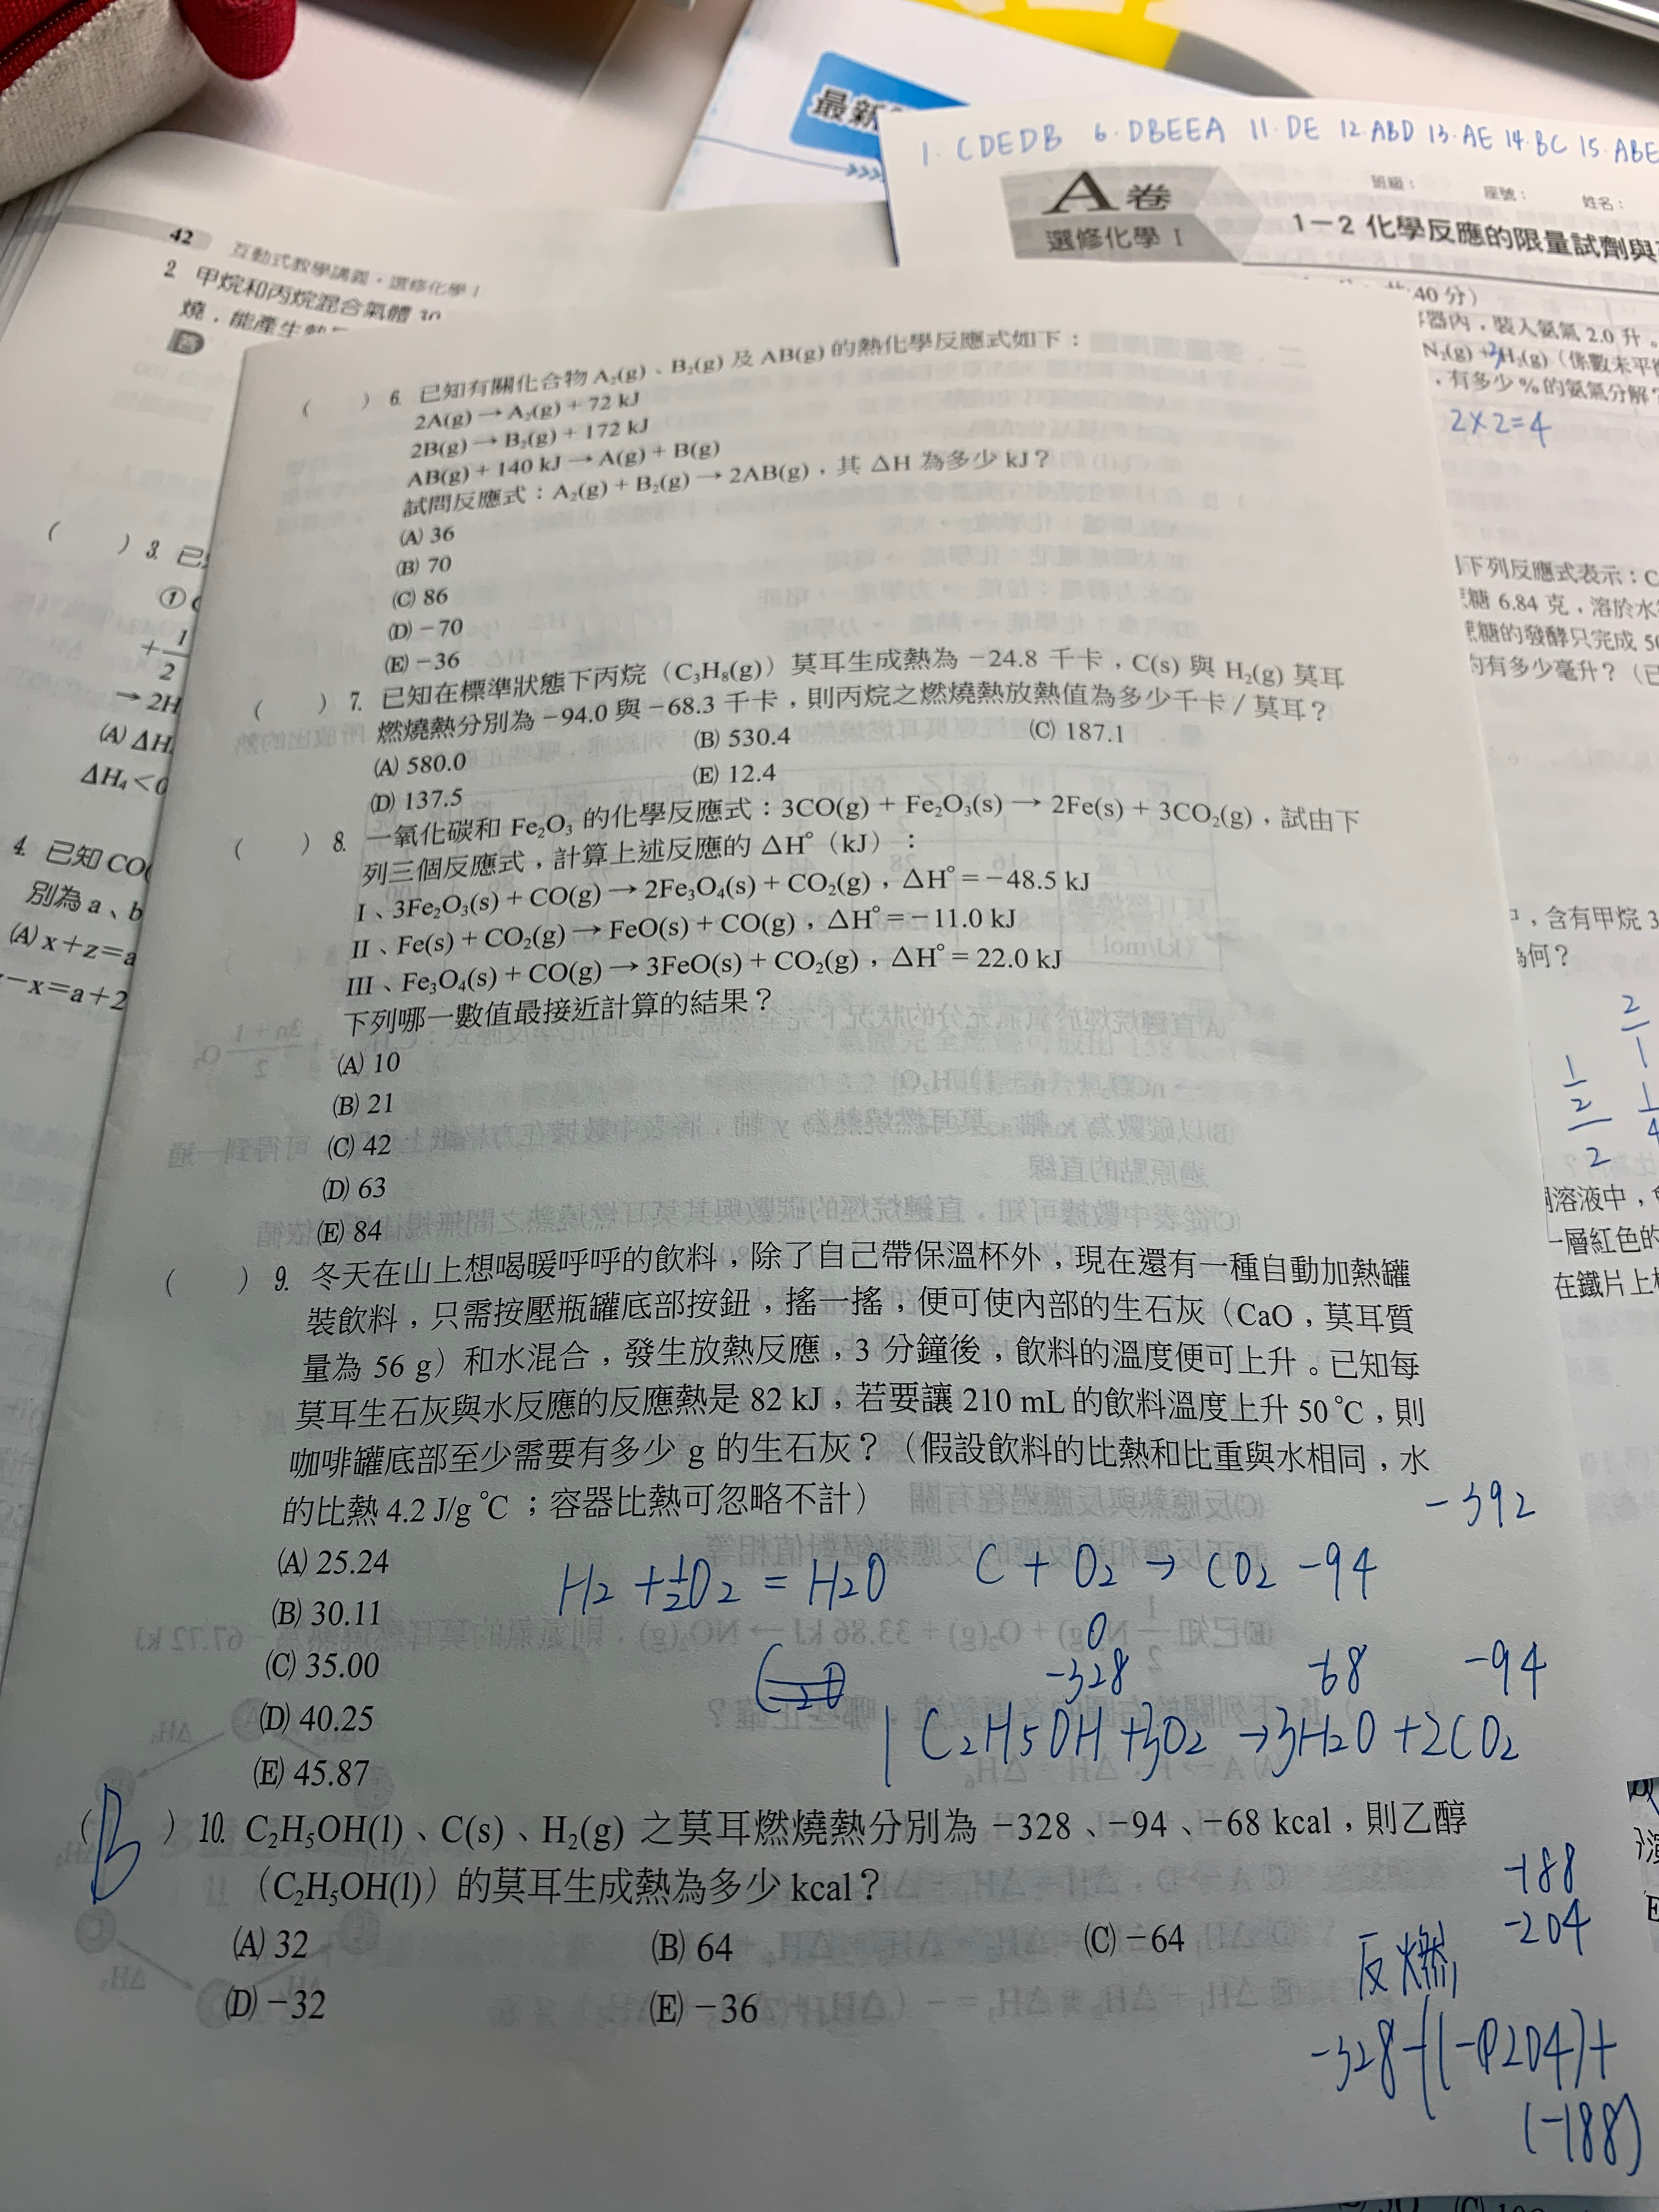 最新
1. CDEDB 6. DBEEA 11. DE 12. ABD 13. AE 14. BC 15. ABE
A卷
選修化學 I
班級:
座號:
姓名:
1-2 化學反應的限量試劑與
40 分)
器內,裝入氨氣 2.0 升。
N₂(g) + 3H₂(g)(係數未平衡
,有多少 % 的氨氣分解?
2×2=4
下列反應式表示:C
糖 6.84 克,溶於水
糖的發酵只完成 50
約有多少毫升?(已
中,含有甲烷 3
為何?
溶液中,
一層紅色的
在鐵片上
42 互動式教學講義・選修化學 I
2 甲烷和丙烷混合氣體 30
燒,能產生熱
答
( ) 3. 已
①
+ 1/2
→ 2H
(A) ΔH
ΔH₄ < 0
4. 已知 CO
別為 a、b
(A) x + z = a
- x = a + 2
( ) 6. 已知有關化合物 A₂(g)、B₂(g) 及 AB(g) 的熱化學反應式如下:
2A(g) → A₂(g) + 72 kJ
2B(g) → B₂(g) + 172 kJ
AB(g) + 140 kJ → A(g) + B(g)
試問反應式:A₂(g) + B₂(g) → 2AB(g),其 ΔH 為多少 kJ?
(A) 36
(B) 70
(C) 86
(D) -70
(E) -36
( ) 7. 已知在標準狀態下丙烷(C₃H₈(g))莫耳生成熱為 -24.8 千卡,C(s) 與 H₂(g) 莫耳
燃燒熱分別為 -94.0 與 -68.3 千卡,則丙烷之燃燒熱放熱值為多少千卡/莫耳?
(A) 580.0 (B) 530.4 (C) 187.1
(D) 137.5 (E) 12.4
( ) 8. 一氧化碳和 Fe₂O₃ 的化學反應式:3CO(g) + Fe₂O₃(s) → 2Fe(s) + 3CO₂(g),試由下
列三個反應式,計算上述反應的 ΔH°(kJ):
I、3Fe₂O₃(s) + CO(g) → 2Fe₃O₄(s) + CO₂(g),ΔH° = -48.5 kJ
II、Fe(s) + CO₂(g) → FeO(s) + CO(g),ΔH° = -11.0 kJ
III、Fe₃O₄(s) + CO(g) → 3FeO(s) + CO₂(g),ΔH° = 22.0 kJ
下列哪一數值最接近計算的結果?
(A) 10
(B) 21
(C) 42
(D) 63
(E) 84
( ) 9. 冬天在山上想喝暖呼呼的飲料,除了自己帶保溫杯外,現在還有一種自動加熱罐
裝飲料,只需按壓瓶罐底部按鈕,搖一搖,便可使內部的生石灰(CaO,莫耳質
量為 56 g)和水混合,發生放熱反應,3 分鐘後,飲料的溫度便可上升。已知每
莫耳生石灰與水反應的反應熱是 82 kJ,若要讓 210 mL 的飲料溫度上升 50 ℃,則
咖啡罐底部至少需要有多少 g 的生石灰?(假設飲料的比熱和比重與水相同,水
的比熱 4.2 J/g ℃;容器比熱可忽略不計)
(A) 25.24
(B) 30.11
(C) 35.00
(D) 40.25
(E) 45.87
-392
H₂ + 1/2 O₂ = H₂O C + O₂ → CO₂ -94
0
-328 -68 -94
1 C₂H₅OH + 3O₂ → 3H₂O + 2CO₂
( B ) 10. C₂H₅OH(l)、C(s)、H₂(g) 之莫耳燃燒熱分別為 -328、-94、-68 kcal,則乙醇
(C₂H₅OH(l))的莫耳生成熱為多少 kcal?
(A) 32 (B) 64 (C) -64
(D) -32 (E) -36
-188
-204
反燃
-328-(-204)+
(-188)